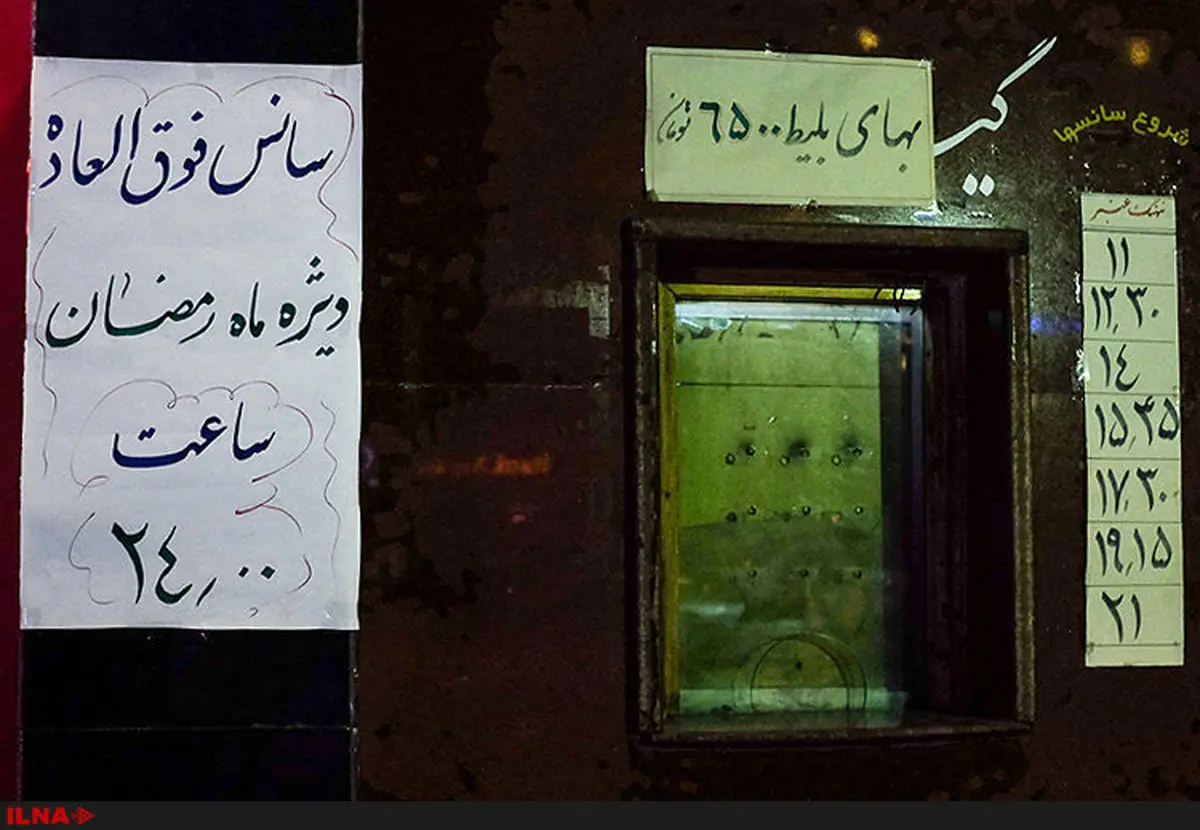 گیشه
بهای بلیط ۶۵۰۰ تومان
شروع سانسها
نهنگ عنبر
۱۱
۱۲٫۳۰
۱۴
۱۵٫۴۵
۱۷٫۳۰
۱۹٫۱۵
۲۱
سانس فوق العاده
ویژه ماه رمضان
ساعت
۲۴٫۰۰
ILNA